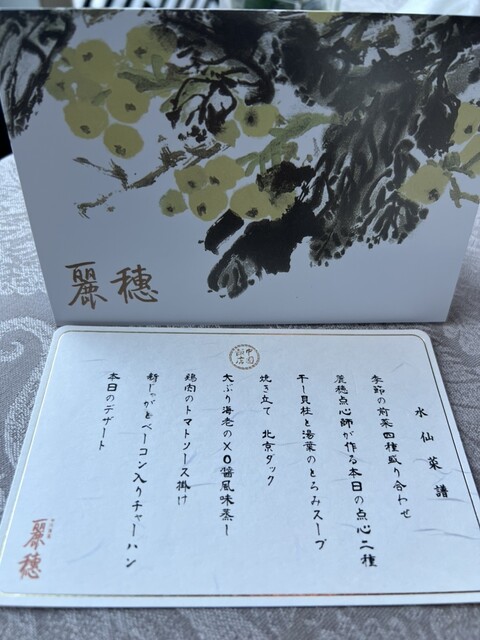 麗穂
水仙菜譜
季節の前菜四種盛り合わせ
麗穂点心師が作る本日の点心二種
干し貝柱と湯葉のとろみスープ
焼き立て 北京ダック
大ぶり海老のXO醬風味蒸し
鶏肉のトマトソース掛け
新じゃがとベーコン入りチャーハン
本日のデザート
麗穂